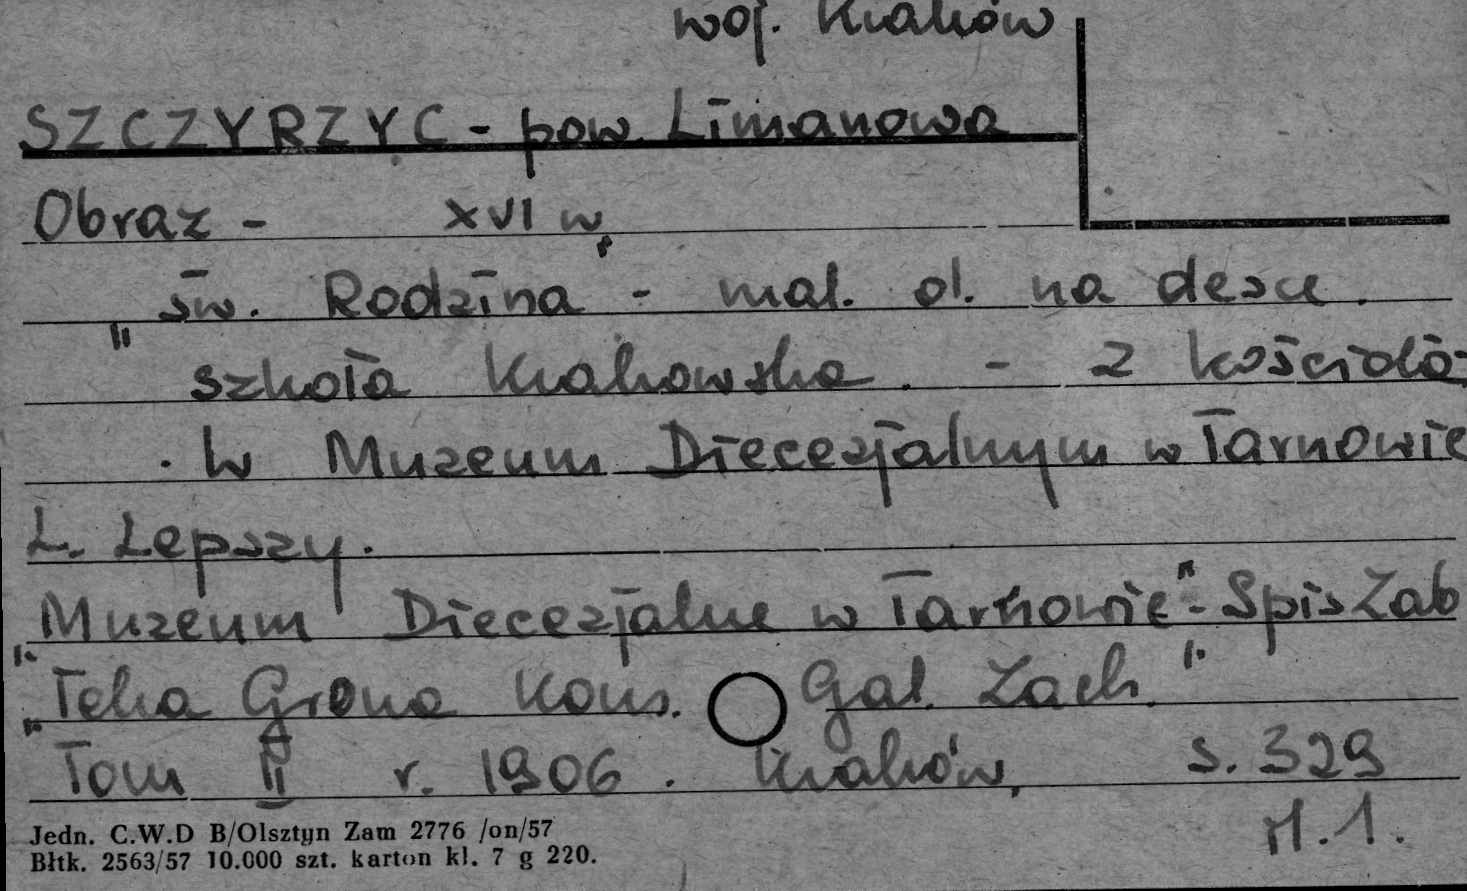 woj. Kraków
SZCZYRZYC - pow. Limanowa
Obraz - XVI w.
"św. Rodzina" - mal. ol. na desce.
szkoła Krakowska. - z kościoła
. W Muzeum Diecezjalnym w Tarnowie
L. Lepszy.
"Muzeum Diecezjalne w Tarnowie" - Spis Zab
"Teka Grona Kons. Gal. Zach."
Tom II r. 1906. Kraków, s. 329
il. 1.
Jedn. C.W.D B/Olsztyn Zam 2776 /on/57
Błtk. 2563/57 10.000 szt. karton kl. 7 g 220.